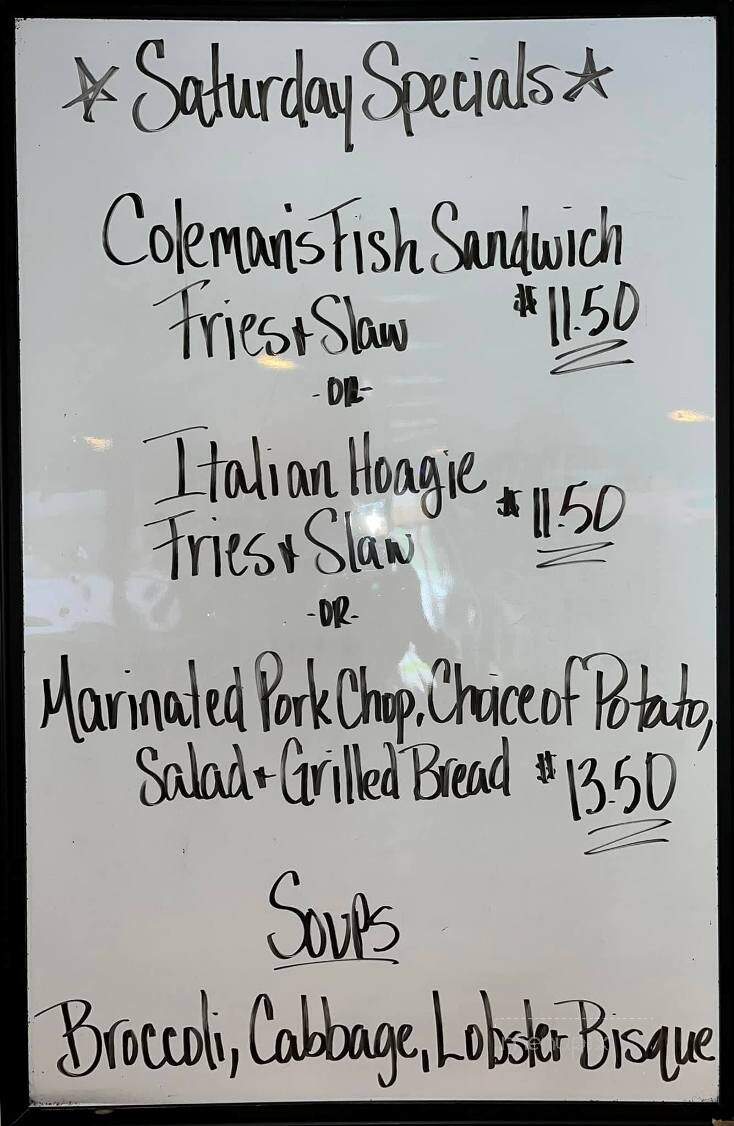 ☆ Saturday Specials ☆
Coleman's Fish Sandwich
Fries + Slaw $11.50
-OR-
Italian Hoagie
Fries + Slaw $11.50
-OR-
Marinated Pork Chop, Choice of Potato,
Salad + Grilled Bread $13.50
Soups
Broccoli, Cabbage, Lobster Bisque